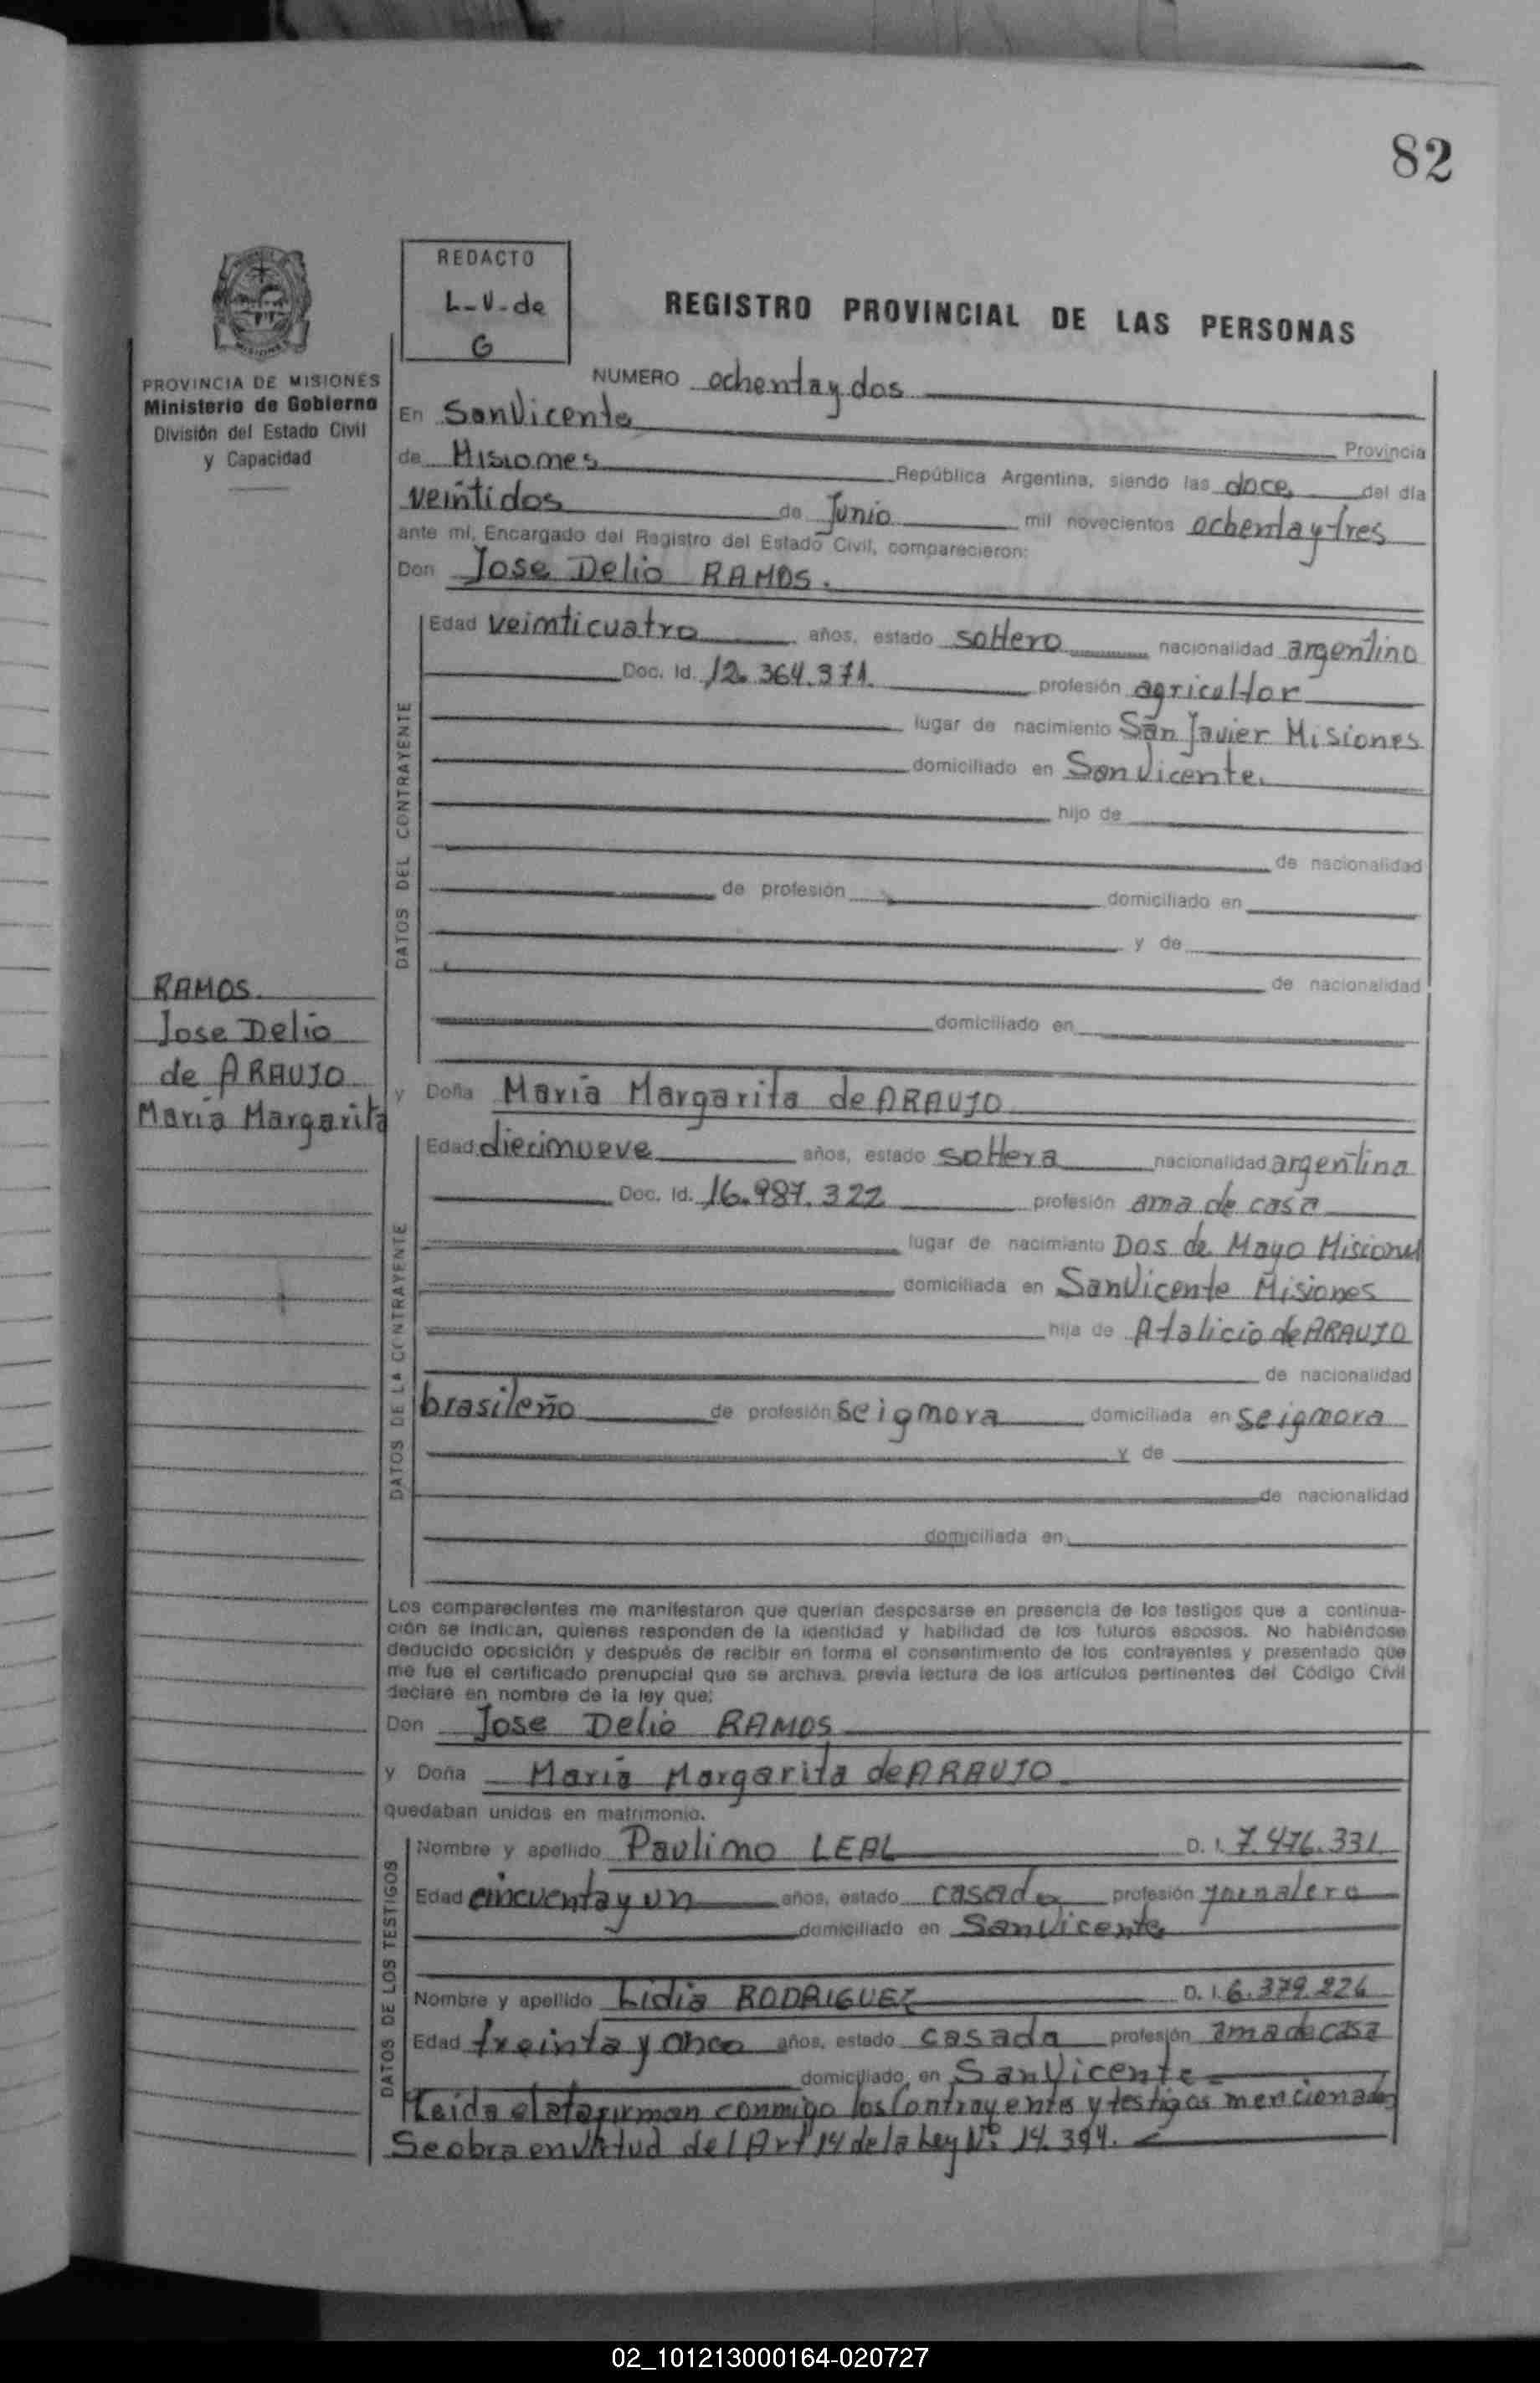 82
REDACTO
L-V-de
G
REGISTRO PROVINCIAL DE LAS PERSONAS
PROVINCIA DE MISIONES
Ministerio de Gobierno
División del Estado Civil
y Capacidad
NUMERO ochenta y dos
En San Vicente Provincia
de Misiones República Argentina, siendo las doce del día
veintidos de Junio mil novecientos ochenta y tres
ante mí, Encargado del Registro del Estado Civil, comparecieron:
Don Jose Delio RAMOS.
DATOS DEL CONTRAYENTE
Edad veinticuatro años, estado soltero nacionalidad argentino
Doc. Id. 12.364.371 profesión agricultor
lugar de nacimiento San Javier Misiones
domiciliado en San Vicente.
hijo de
de nacionalidad
de profesión domiciliado en
y de
de nacionalidad
domiciliado en
RAMOS
Jose Delio
de ARAUJO
Maria Margarita
y Doña Maria Margarita de ARAUJO
DATOS DE LA CONTRAYENTE
Edad diecinueve años, estado soltera nacionalidad argentina
Doc. Id. 16.987.322 profesión ama de casa
lugar de nacimianto Dos de Mayo Misiones
domiciliada en San Vicente Misiones
hija de Atalicio de ARAUJO
de nacionalidad
brasileño de profesión se ignora domiciliada en se ignora
y de
de nacionalidad
domiciliada en
Los comparecientes me manifestaron que querían desposarse en presencia de los testigos que a continua-
ción se indican, quienes responden de la identidad y habilidad de los futuros esposos. No habiéndose
deducido oposición y después de recibir en forma el consentimiento de los contrayentes y presentado que
me fue el certificado prenupcial que se archiva, previa lectura de los artículos pertinentes del Código Civil
declaré en nombre de la ley que:
Don Jose Delio RAMOS
y Doña Maria Margarita de ARAUJO
quedaban unidos en matrimonio.
DATOS DE LOS TESTIGOS
Nombre y apellido Paulino LEAL D. I. 7.476.331
Edad cincuenta y un años, estado casado profesión jornalero
domiciliado en San Vicente
Nombre y apellido Lidia RODRIGUEZ D. I. 6.379.226
Edad treinta y once años, estado casada profesión ama de casa
domiciliado en San Vicente
Leida el acta firman conmigo los Contrayentes y testigos mencionados
Se obra en virtud del Art 14 de la Ley Nº 14.394.
02_101213000164-020727